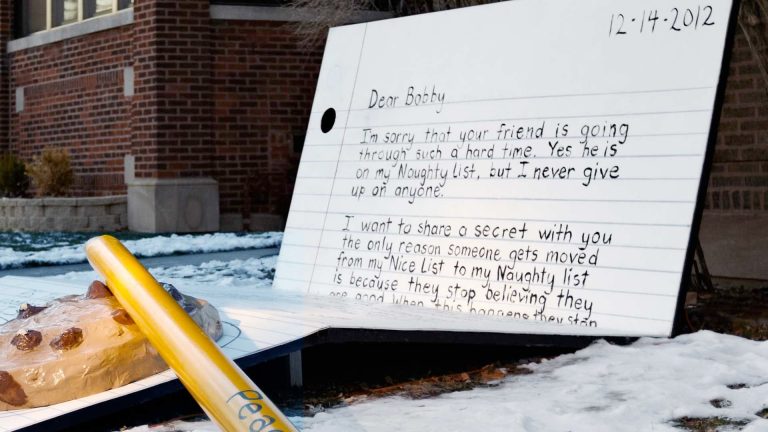 12-14-2012
Dear Bobby
I'm sorry that your friend is going
through such a hard time. Yes he is
on my Naughty List, but I never give
up on anyone.
I want to share a secret with you
the only reason someone gets moved
from my Nice List to my Naughty list
is because they stop believing they
are good When this happens they stop